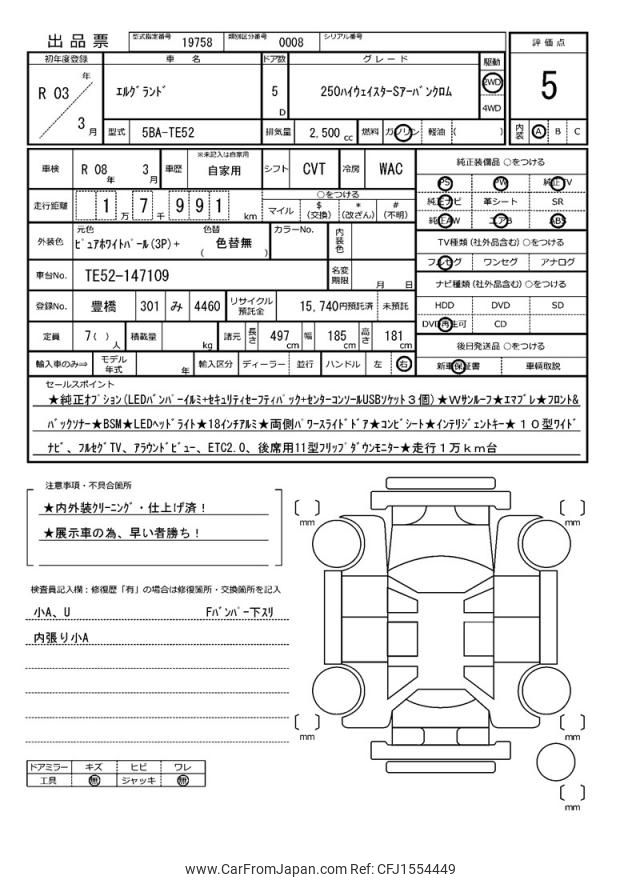 出品票 型式指定番号 19758 類別区分番号 0008 シリアル番号
評価点
5
内装 A B C
初年度登録 車名 ドア数 グレード 駆動
R 03 年 3 月
エルグランド
5 D
250ハイウェイスターSアーバンクロム
2WD
4WD
型式 5BA-TE52 排気量 2,500 cc 燃料 ガソリン 軽油 ( )
車検 R 08 年 3 月 車歴 ※未記入は自家用 自家用 シフト CVT 冷房 WAC
走行距離 1 万 7 千 9 9 1 km
○をつける
マイル $ (交換) * (改ざん) # (不明)
外装色 元色 ピュアホワイトパール(3P)+ 色替 ( 色替無 ) カラーNo. 内装色
車台No. TE52-147109 名変期限 月 日
登録No. 豊橋 301 み 4460 リサイクル預託金 15,740円預託済 未預託
定員 7( ) 人 積載量 kg 諸元 長さ 497 cm 幅 185 cm 高さ 181 cm
輸入車のみ⇨ モデル年式 年 輸入区分 ディーラー 並行 ハンドル 左 右
純正装備品 ○をつける
PS PW 純正TV
純正ナビ 革シート SR
純正AW エアB ABS
TV種類 (社外品含む) ○をつける
フルセグ ワンセグ アナログ
ナビ種類 (社外品含む) ○をつける
HDD DVD SD
DVD再生可 CD
後日発送品 ○をつける
新車保証書 車輌取説
セールスポイント
★純正オプション(LEDバンパーイルミ+セキュリティセーフティパック+センターコンソールUSBソケット3個)★Wサンルーフ★エマブレ★フロント&
バックソナー★BSM★LEDヘッドライト★18インチアルミ★両側パワースライドドア★コンビシート★インテリジェントキー★10型ワイド
ナビ、フルセグTV、アラウンドビュー、ETC2.0、後席用11型フリップダウンモニター★走行1万km台
注意事項・不具合箇所
★内外装クリーニング・仕上げ済!
★展示車の為、早い者勝ち!
検査員記入欄:修復歴「有」の場合は修復箇所・交換箇所を記入
小A、U Fバンパー下スリ
内張り小A
ドアミラー キズ ヒビ ワレ
工具 無 ジャッキ 無
mm
mm
mm
mm
mm
www.CarFromJapan.com Ref: CFJ1554449